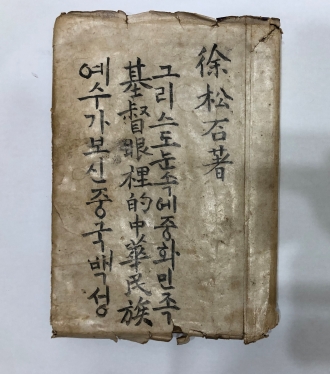 徐松石著
그리스도눈속에중화민족
基督眼裡的中華民族
예수가보신중국백성